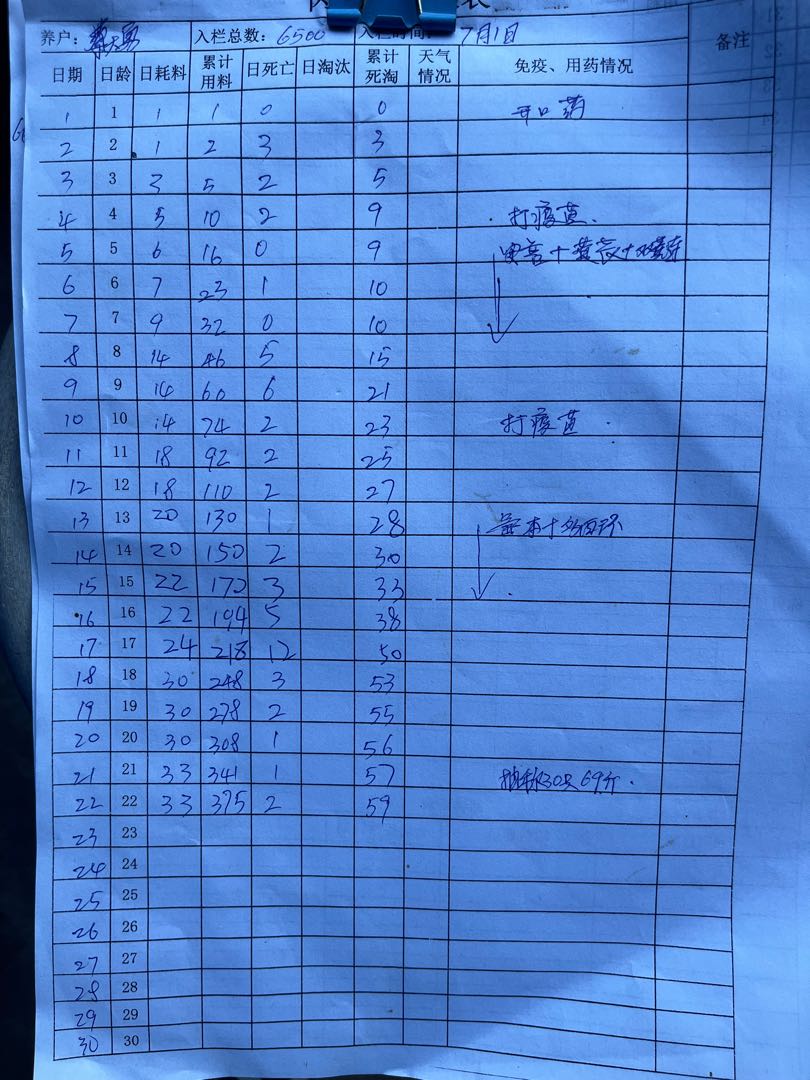 养户: 入栏总数: 6500 入栏时间: 7月1日 备注
日期 日龄 日耗料 累计用料 日死亡 日淘汰 累计死淘 天气情况 免疫、用药情况
1 1 1 1 0 0 开口药
2 2 1 2 3 3
3 3 3 5 2 5
4 4 5 10 2 9 打疫苗.
5 5 6 16 0 9
6 6 7 23 1 10
7 7 9 32 0 10
8 8 14 46 5 15
9 9 14 60 6 21
10 10 14 74 2 23 打疫苗.
11 11 18 92 2 25
12 12 18 110 2 27
13 13 20 130 1 28
14 14 20 150 2 30
15 15 22 172 3 33
16 16 22 194 5 38
17 17 24 218 12 50
18 18 30 248 3 53
19 19 30 278 2 55
20 20 30 308 1 56
21 21 33 341 1 57 抽称30只69斤.
22 22 33 375 2 59
23 23
24 24
25 25
26 26
27 27
28 28
29 29
30 30